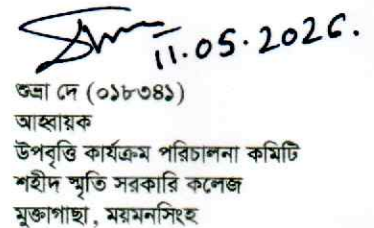 11.05.2026.
শুভ্রা দে (০১৮৩৪১)
আহ্বায়ক
উপবৃত্তি কার্যক্রম পরিচালনা কমিটি
শহীদ স্মৃতি সরকারি কলেজ
মুক্তাগাছা, ময়মনসিংহ